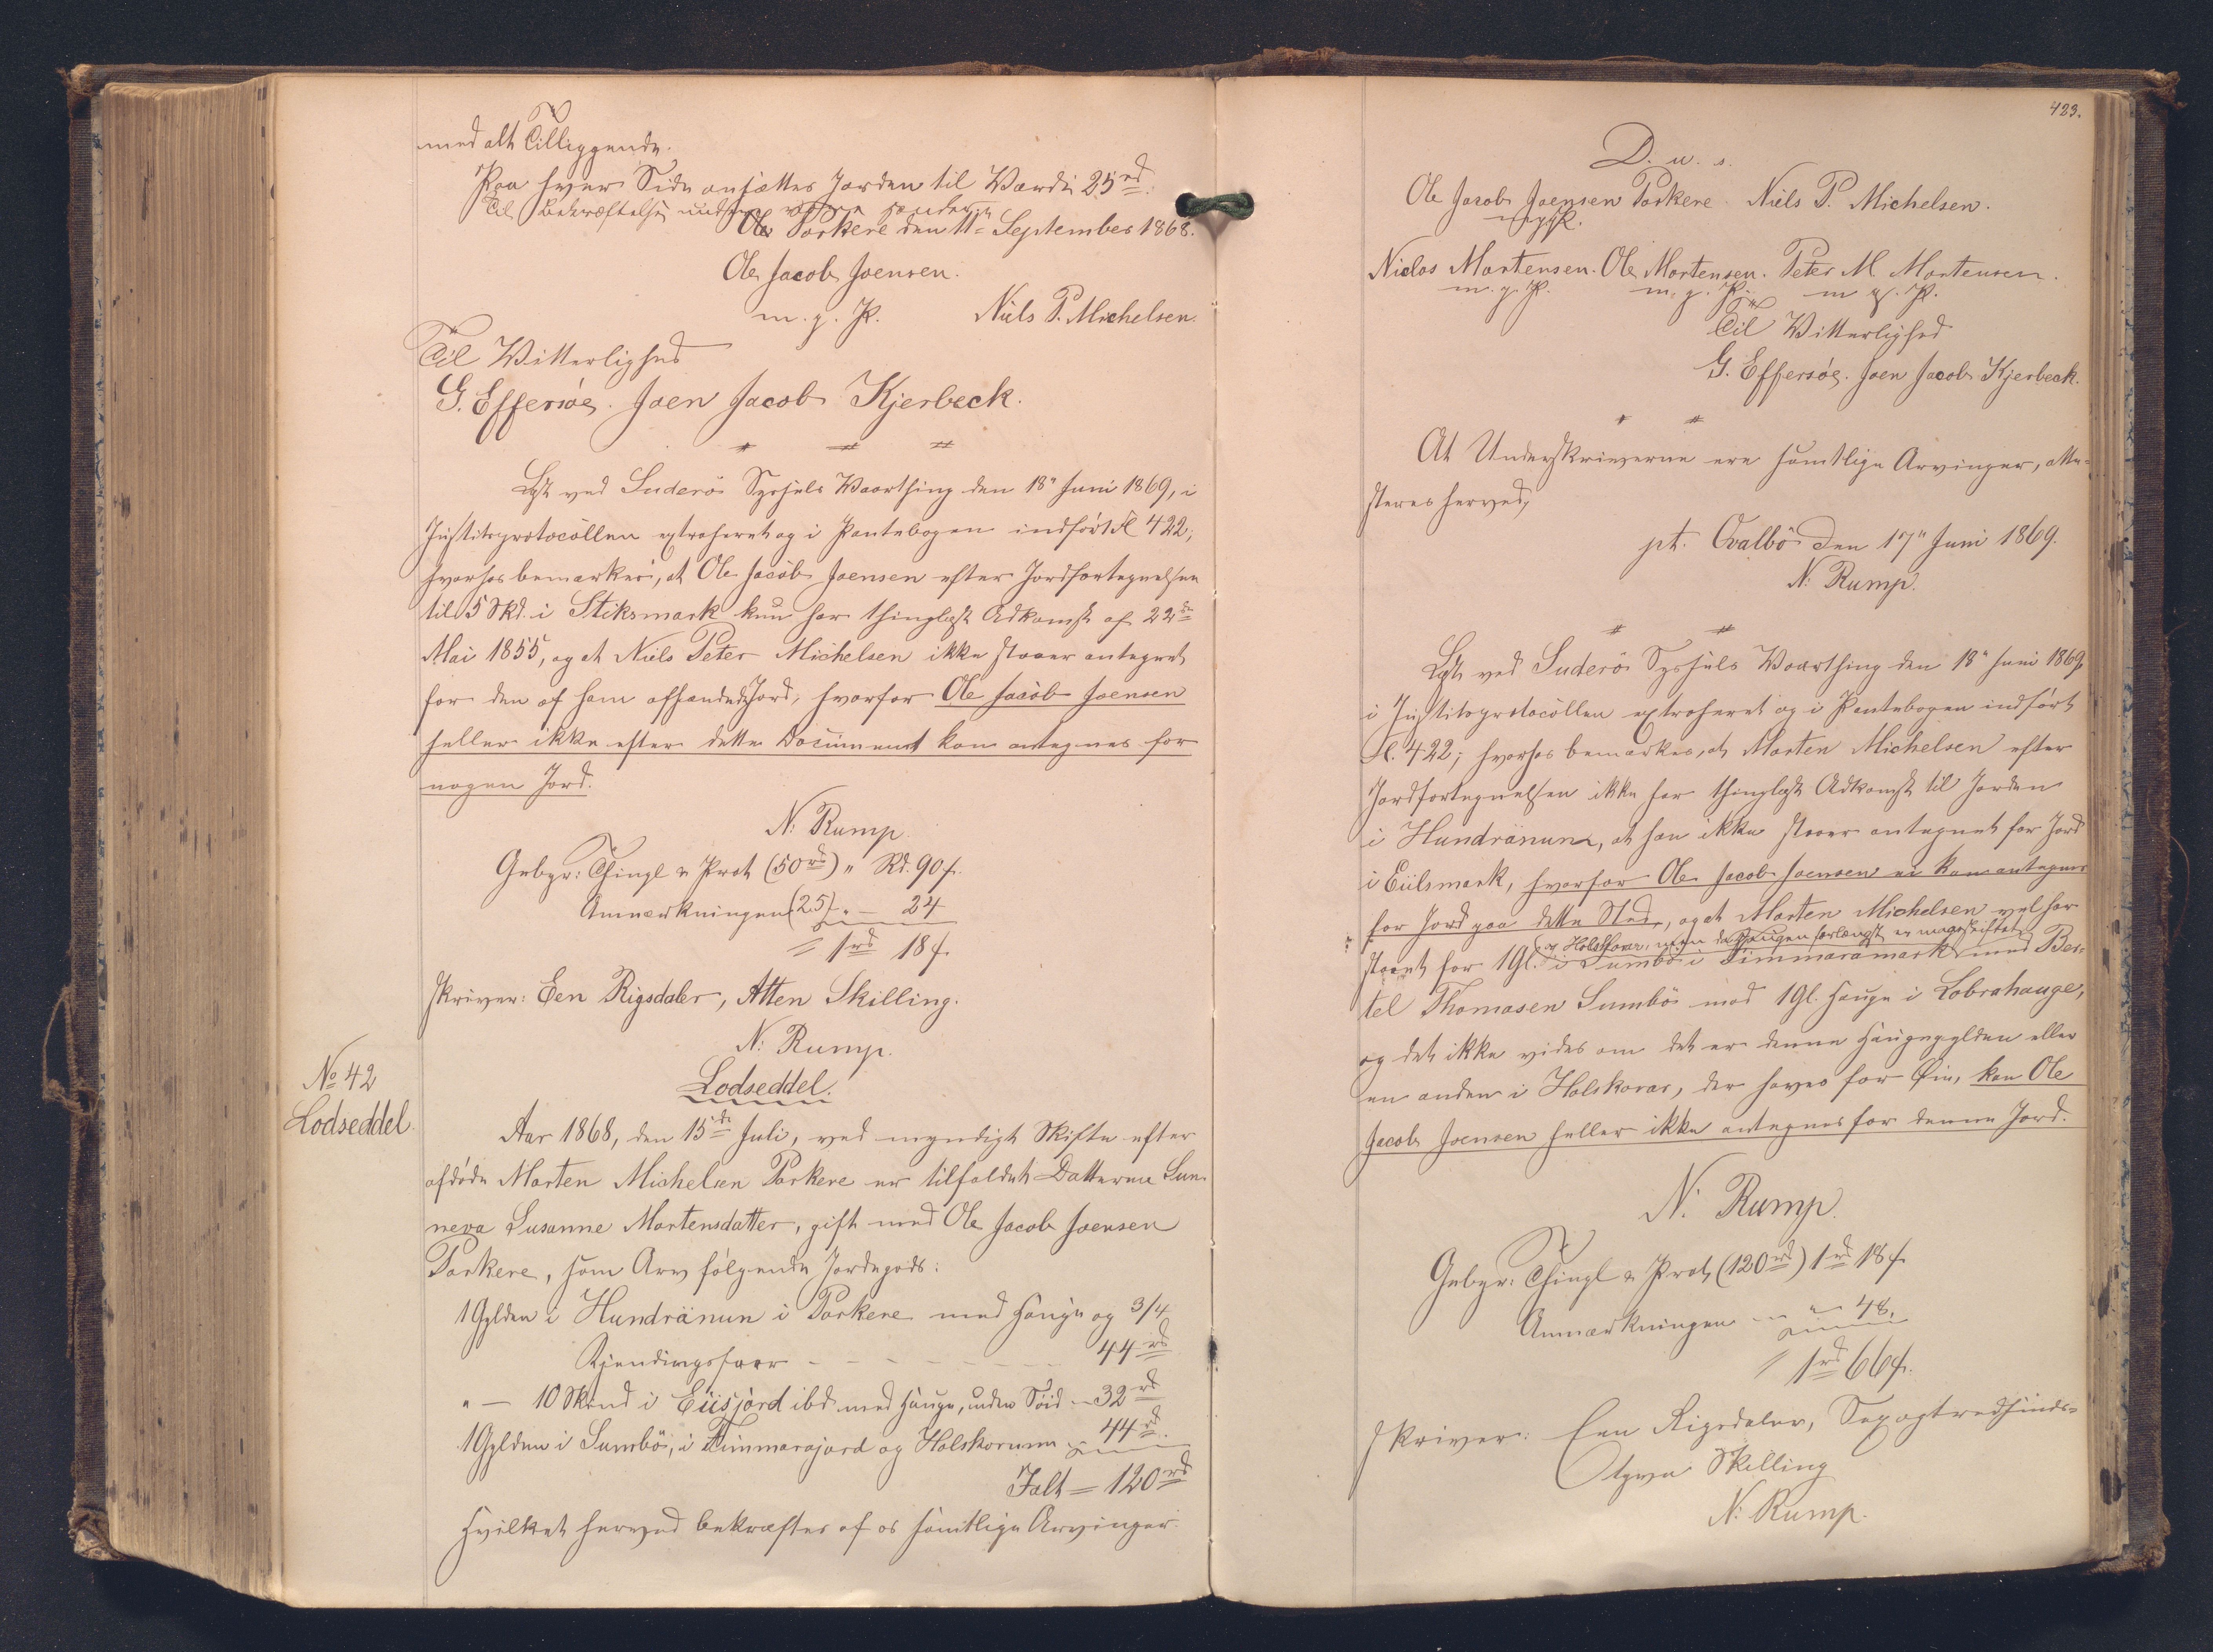 med alt Tilliggende.
Paa hver Side ansættes Jorden til Værdi 25 rd.
Til Bekræftelse under vore Hænder
Porkere den 11 September 1868.
Ole Jacob Joensen.
m. f. P. Niels P. Michelsen.
Til Vitterlighed
G. Effersöe. Joen Jacob Kjerbeck.
Læst ved Suderö Syssels Vaarthing den 18" Juni 1869, i
Justitsprotocollen extraheret og i Pantebogen indført Fl 422;
hvorhos bemærkes, at Ole Jacob Joensen efter Jordfortegnelsen
til 5 Skd. i Stiksmark kun har thinglæst Adkomst af 22de
Mai 1855, og at Niels Peter Michelsen ikke staaer antegnet
for den af ham afhændede Jord, hvorfor Ole Jacob Joensen
heller ikke efter dette Document kan antegnes for
nogen Jord.
N: Rump.
Gebyr: Thingl & Prot (50 rd) " Rd. 90 f.
Anmærkningen (25) " — 24
= 1 rd 18 f.
skriver: Een Rigsdaler, Atten Skilling.
N: Rump.
No 42
Lodseddel.
Lodseddel.
Aar 1868, den 15de Juli, ved myndigt Skifte efter
afdøde Morten Michelsen Porkere er tilfaldet Datteren Sun-
neva Susanne Mortensdatter, gift med Ole Jacob Joensen
Porkere, som Arv følgende Jordegods:
1 Gylden i Hundränun i Porkere med Hauge og 3/4
Kjendingsfaar - - - - - 44 rd
" — 10 Skind i Eiisjörd ibd med Hauge, uden Söid - 32 rd
1 Gylden i Sumbö, i Timmarajord og Holskorunn - 44 rd.
Ialt = 120 rd
Hvilket herved bekræftes af os samtlige Arvinger
423.
D. u. s.
Ole Jacob Joensen Porkere. Niels P. Michelsen.
m f P.
Niclas Mortensen. Ole Mortensen. Peter M. Mortensen.
m. f. P. m. f. P. m f. P.
Til Vitterlighed
G. Effersöe. Joen Jacob Kjerbeck.
At Underskriverne ere samtlige Arvinger, atte-
steres herved,
pt. Qvalbö den 17" Juni 1869.
N: Rump.
Læst ved Suderö Syssels Vaarthing den 18" Juni 1869,
i Justitsprotocollen extraheret og i Pantebogen indført
Fl. 422; hvorhos bemærkes, at Morten Michelsen efter
Jordfortegnelsen ikke har thinglæst Adkomst til Jorden
i Hundränun, at han ikke staaer antegnet for Jord
i Eiilsmark, hvorfor Ole Jacob Joensen ei kan antegnes
for Jord paa dette Sted, og at Morten Michelsen vel har
og Holskorar, men da Haugen forlængst er mageskiftet
staaet for 1 Gl. i Sumbö i Timmaramark med Ber-
tel Thomasen Sumbö mod 1 Gl. Hauge i Lobrahauge,
og det ikke vides om det er denne Haugegylden eller
en anden i Holskorar, der haves for Öie, kan Ole
Jacob Joensen heller ikke antegnes for denne Jord.
N: Rump.
Gebyr: Thingl & Prot (120 rd) 1 rd 18 f
Anmærkningen — " 48.
= 1 rd 66 f.
skriver: Een Rigsdaler, Sexogtredsinds-
tyve Skilling
N: Rump.